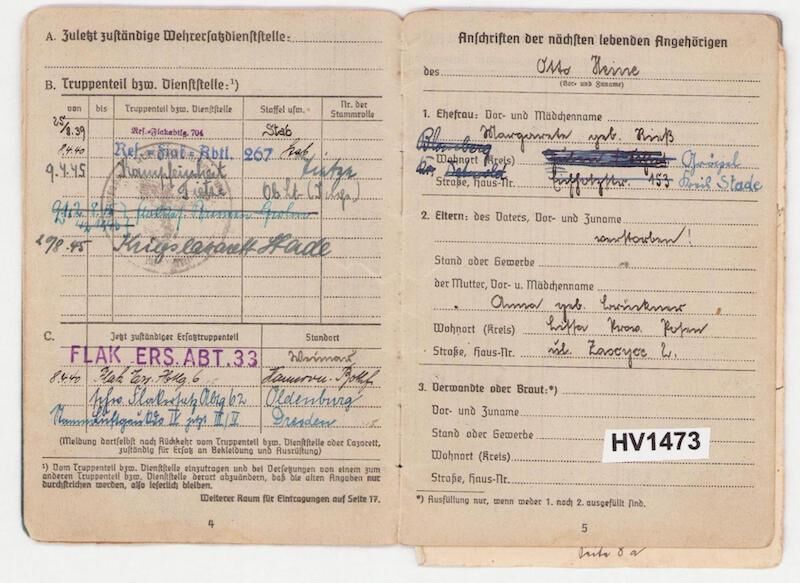 A. Zuletzt zuständige Wehrersatzdienststelle:
B. Truppenteil bzw. Dienststelle:¹)
von bis Truppenteil bzw. Dienststelle Staffel usw. Nr. der Stammrolle
25/8.39 Res.-Flakabtlg. 704 Stab
8.4.40 Res.-Flak-Abtl. 267 Stab
9.4.45
29/8.45 Stade
C. Jetzt zuständiger Ersatztruppenteil Standort
FLAK ERS. ABT. 33 Weimar
8.4.40 Flak. Ers. Abtlg. 6
Flakersatz Abtg 62 Oldenburg
Dresden
(Meldung dortselbst nach Rückkehr vom Truppenteil bzw. Dienststelle oder Lazarett,
zuständig für Ersatz an Bekleidung und Ausrüstung)
¹) Vom Truppenteil bzw. Dienststelle einzutragen und bei Versetzungen von einem zum
anderen Truppenteil bzw. Dienststelle derart abzuändern, daß die alten Angaben nur
durchstrichen werden, also leserlich bleiben.
Weiterer Raum für Eintragungen auf Seite 17.
4
Anschriften der nächsten lebenden Angehörigen
des Otto Heine
(Vor- und Zuname)
1. Ehefrau: Vor- und Mädchenname
Margarete geb.
Blomberg
Wohnort (Kreis)
Kr. Detmold
Straße, Haus-Nr. 153 Kreis Stade
2. Eltern: des Vaters, Vor- und Zuname
verstorben!
Stand oder Gewerbe
der Mutter, Vor- u. Mädchenname
Anna geb. Brückner
Wohnort (Kreis) Lissa Prov. Posen
Straße, Haus-Nr. ul.
3. Verwandte oder Braut:*)
Vor- und Zuname
Stand oder Gewerbe
HV1473
Wohnort (Kreis)
Straße, Haus-Nr.
*) Ausfüllung nur, wenn weder 1. noch 2. ausgefüllt sind.
5
Seite 8a